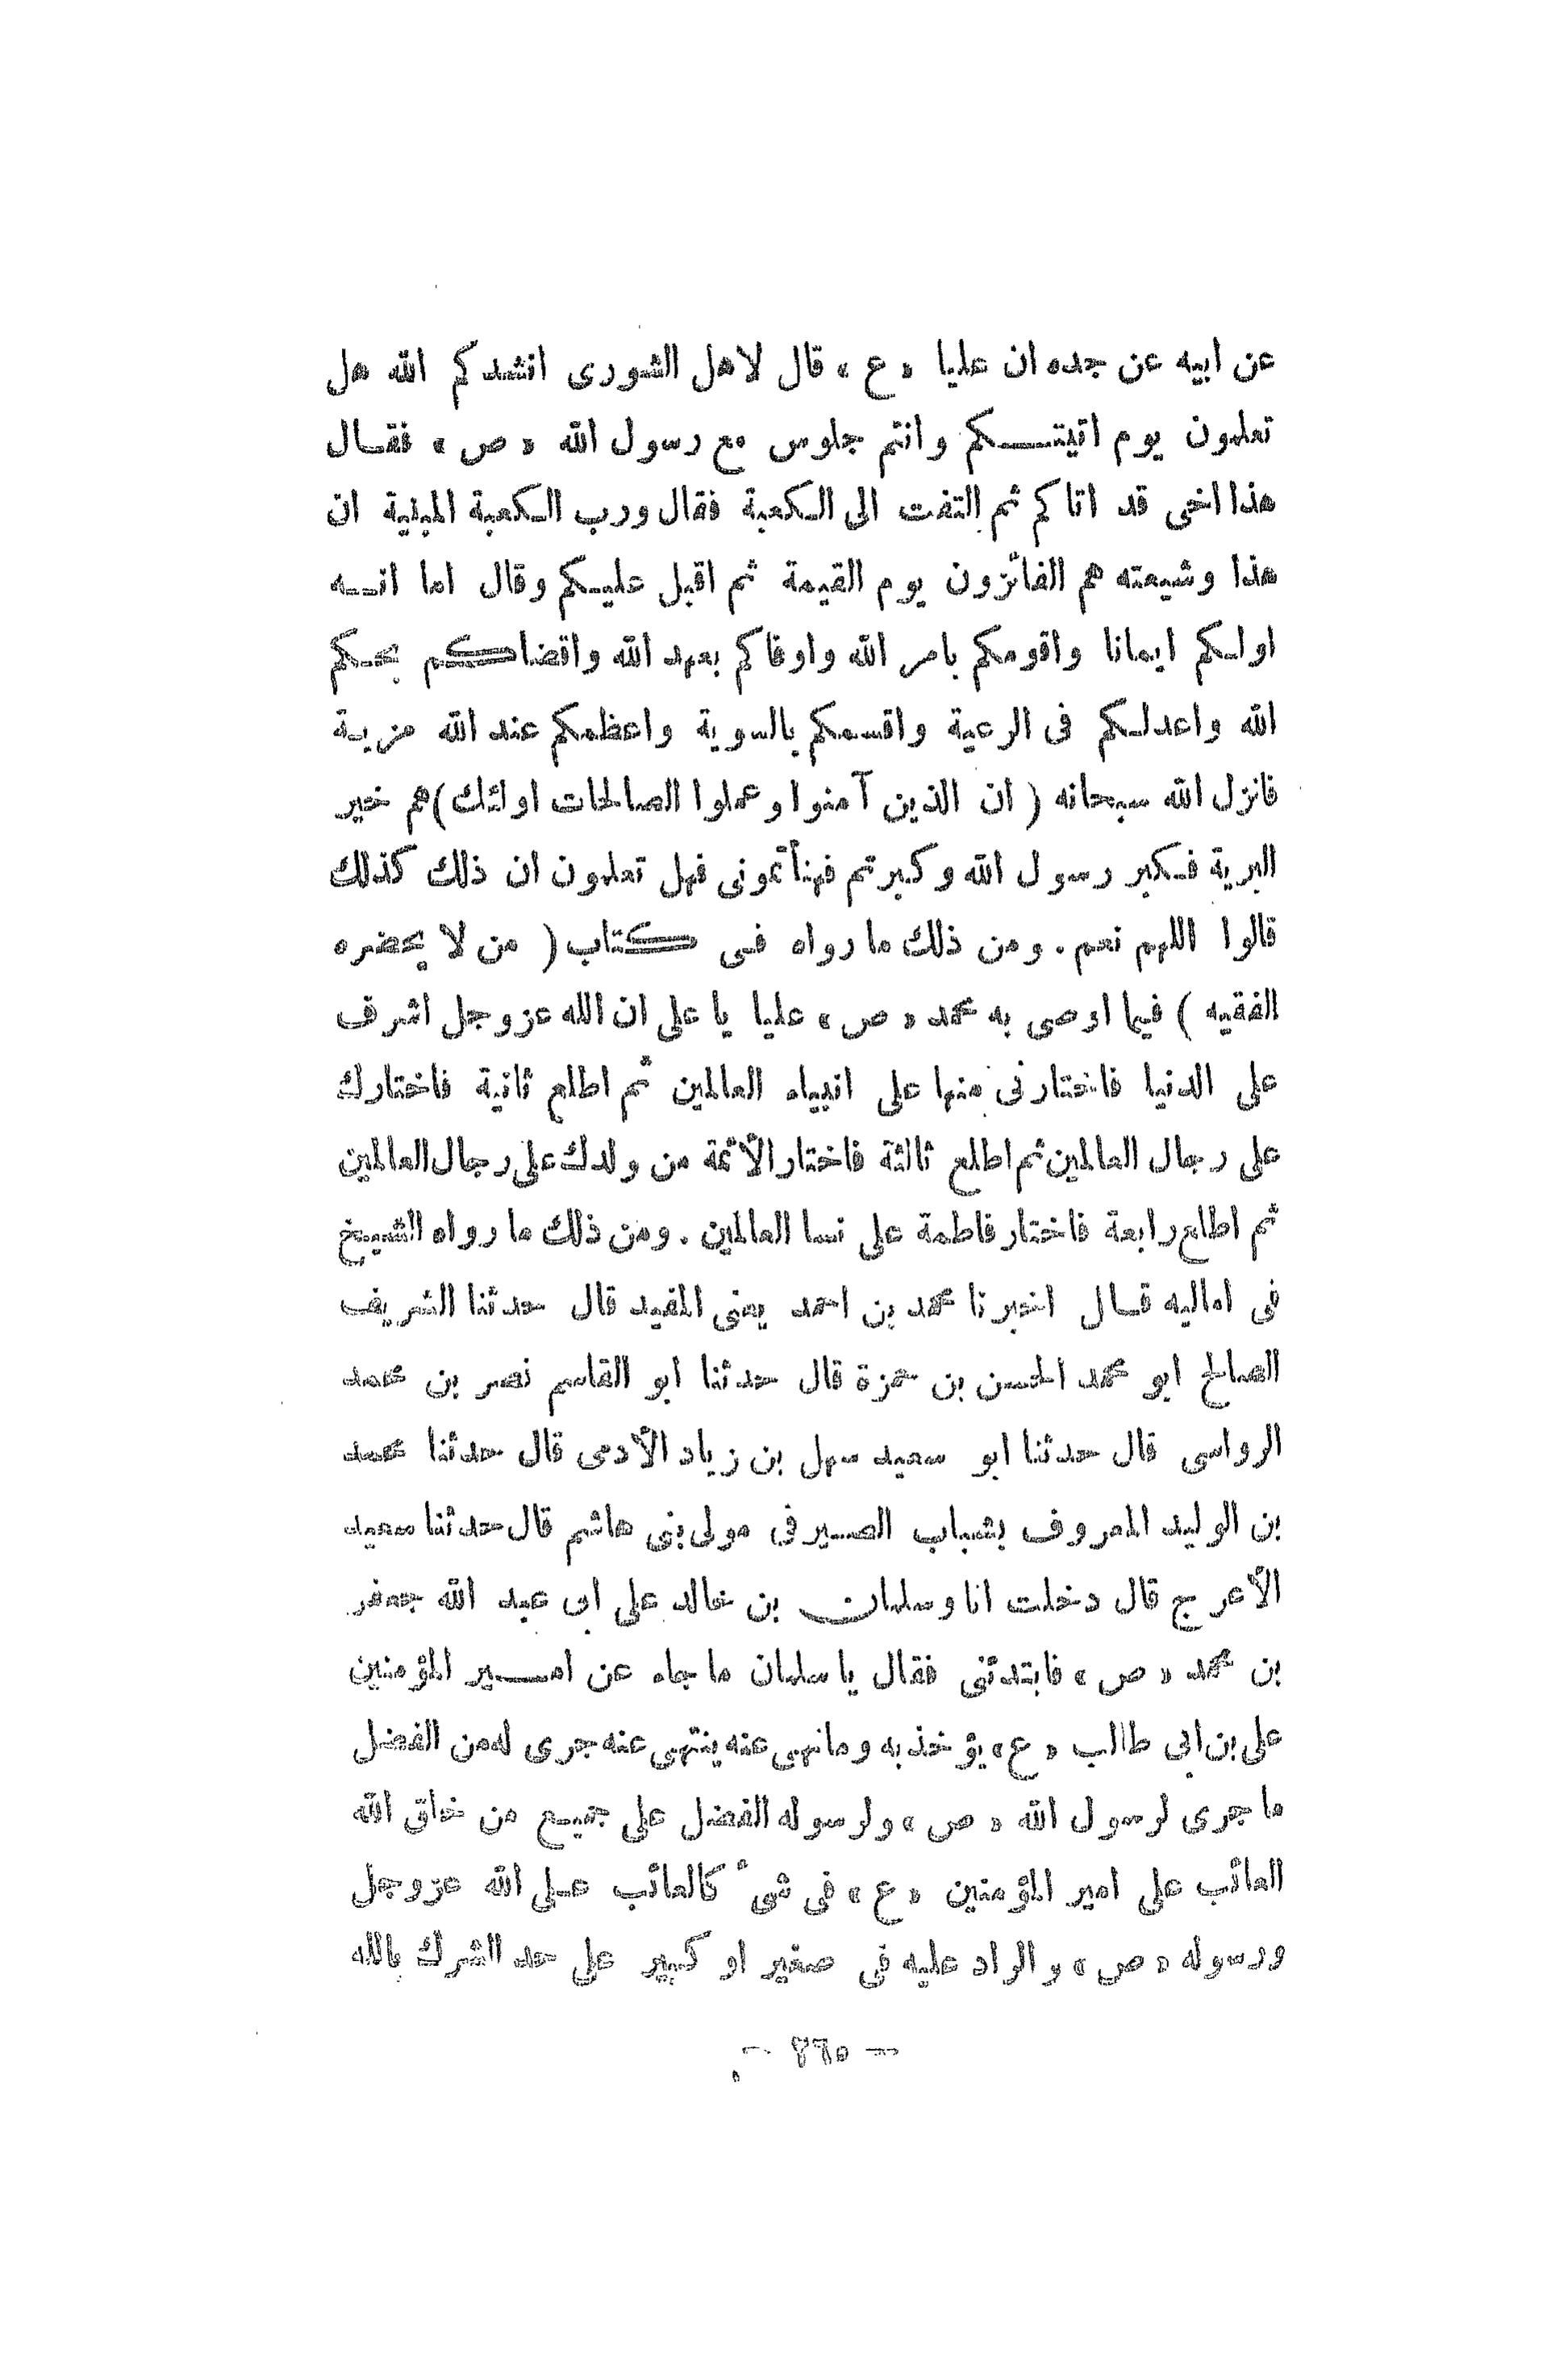 عن ابيه عن جده ان عليا «ع» قال لاهل الشورى انشدكم الله هل
تعلمون يوم اتيتكم وانتم جلوس مع رسول الله «ص» فقال
هذا اخى قد اتاكم ثم التفت الى الكعبة فقال ورب الكعبة المبنية ان
هذا وشيعته هم الفائزون يوم القيمة ثم اقبل عليكم وقال اما انه
اولكم ايمانا واقومكم بامر الله واوفاكم بعهد الله واقضاكم بحكم
الله واعدلكم فى الرعية واقسمكم بالسوية واعظمكم عند الله مزية
فانزل الله سبحانه ( ان الذين آمنوا وعملوا الصالحات اولئك) هم خير
البرية فكبر رسول الله وكبرتم فهنأتمونى فهل تعلمون ان ذلك كذلك
قالوا اللهم نعم . ومن ذلك ما رواه فى كتاب ( من لا يحضره
الفقيه ) فيما اوصى به محمد «ص» عليا يا على ان الله عزوجل اشرف
على الدنيا فاختارنى منها على انبياء العالمين ثم اطلع ثانية فاختارك
على رجال العالمين ثم اطلع ثالثة فاختار الأئمة من ولدك على رجال العالمين
ثم اطلع رابعة فاختار فاطمة على نسا العالمين . ومن ذلك ما رواه الشيخ
فى اماليه قال اخبرنا محمد بن احمد يعنى المفيد قال حدثنا الشريف
الصالح ابو محمد الحسن بن حمزة قال حدثنا ابو القاسم نصر بن محمد
الرواسى قال حدثنا ابو سعيد سهل بن زياد الأدمى قال حدثنا محمد
بن الوليد المعروف بشباب الصيرفى مولى بنى هاشم قال حدثنا سعيد
الأعرج قال دخلت انا وسلمان بن خالد على ابى عبد الله جعفر
بن محمد «ص» فابتدئنى فقال يا سلمان ما جاء عن امير المؤمنين
على بن ابى طالب «ع» يؤخذ به وما نهى عنه ينتهى عنه جرى له من الفضل
ما جرى لرسول الله «ص» ولرسوله الفضل على جميع من خلق الله
العائب على امير المؤمنين «ع» فى شىء كالعائب على الله عزوجل
ورسوله «ص» والراد عليه فى صغير او كبير على حد الشرك بالله
— ٢٦٥ —